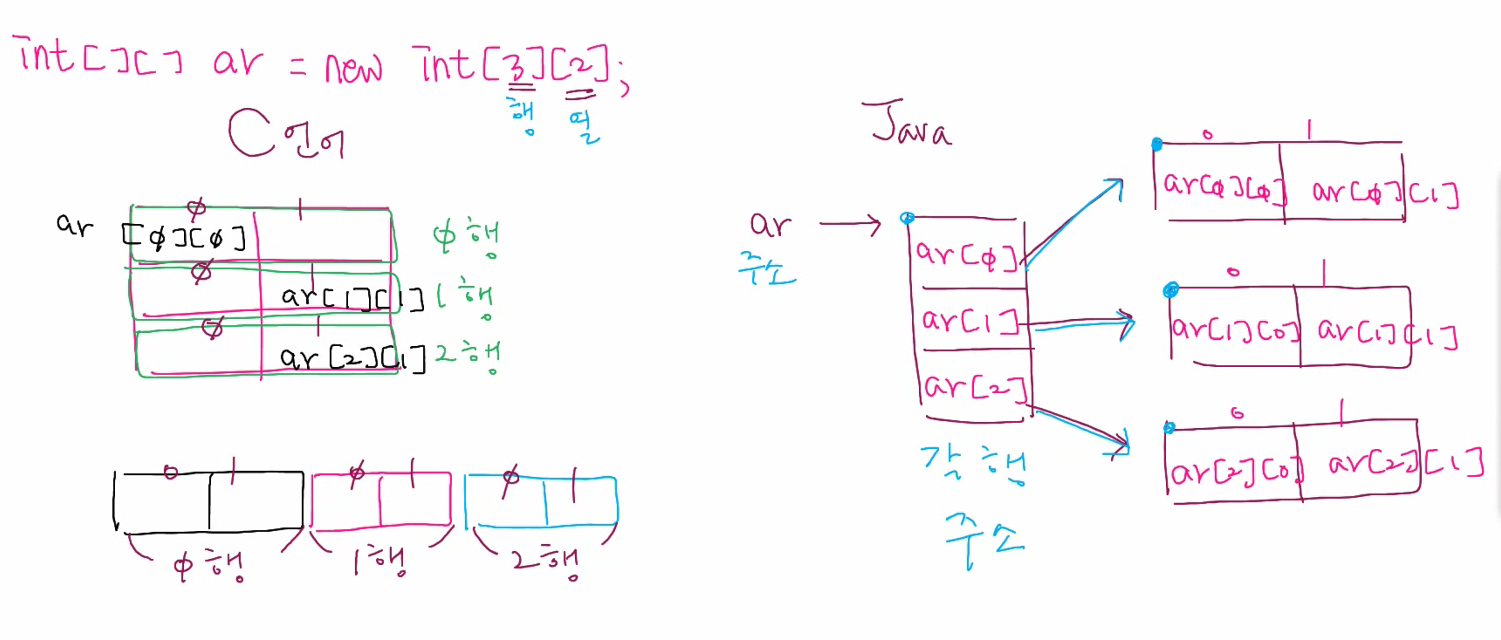 int[][] ar = new int[3][2];
행 열
C언어
0 1
ar [0][0] 0행
0 1
ar[1][1] 1행
0 1
ar[2][1] 2행
0 1 0 1 0 1
0행 1행 2행
Java
ar
주소
ar[0]
ar[1]
ar[2]
각 행
주소
0 1
ar[0][0] ar[0][1]
0 1
ar[1][0] ar[1][1]
0 1
ar[2][0] ar[2][1]